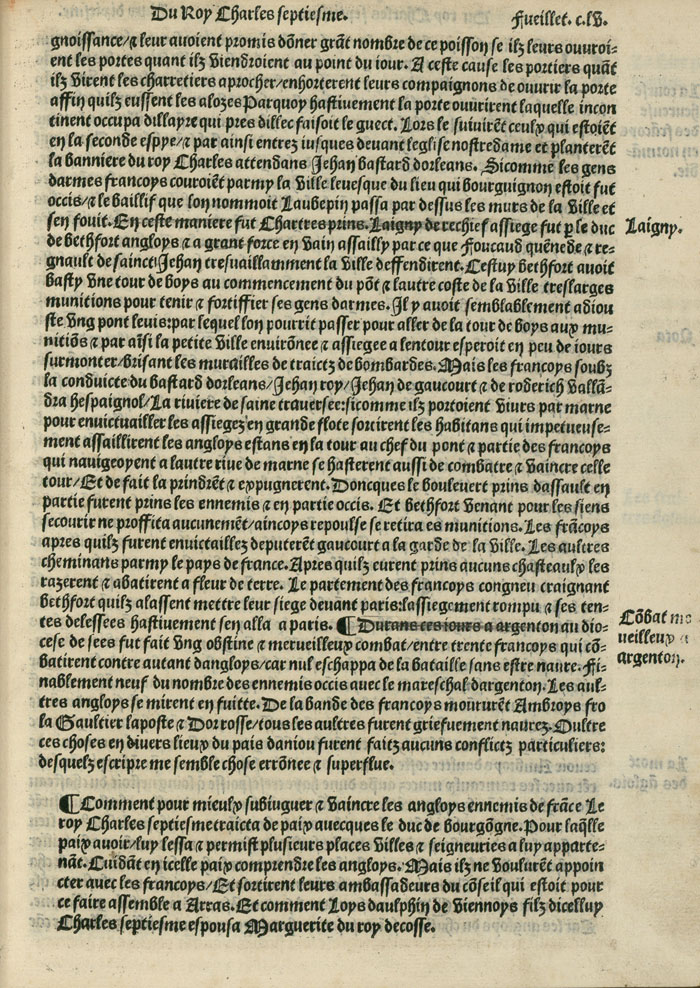 Du Roy Charles septiesme.
Fueillet. c.lv.
gnoissance/⁊ leur auoient promis dōner grāt nombre de ce poisson se ilz leurs ouuroi-
ent les portes quant ilz viendroient au point du iour. A ceste cause les portiers quāt
ilz virent les charretiers aprocher/enhorterent leurs compaignons de ouurir la porte
affin quilz eussent les alozes Parquoy hastiuement la porte ouurirent laquelle incon
tinent occupa dillayre qui pres dillec faisoit le guect. Lors le suiuirēt ceulx qui estoiēt
en la seconde espye/⁊ par ainsi entrez iusques deuant leglise nostredame et planterēt
la banniere du roy Charles attendans Jehan bastard dorleans. Sicomme les gens
darmes francoys couroiēt parmy la ville leuesque du lieu qui bourguignon estoit fut
occis/⁊ le baillif que lon nommoit Laubepin passa par dessus les murs de la ville et
sen fouit. En ceste maniere fut Chartres prins. Laigny de rechief assiege fut ꝑ le duc
Laigny.
de bethfort angloys ⁊ a grant force en vain assailly par ce que Foucaud quēnede ⁊ re-
gnault de sainct Jehan tresuaillamment la ville deffendirent. Cestuy bethfort auoit
basty vne tour de boys au commencement du pōt ⁊ lautre coste de la ville treslarges
munitions pour tenir ⁊ fortiffier ses gens darmes. Il y auoit semblablement adiou
ste vng pont leuis:par lequel lon pourrit passer pour aller de la tour de boys aux mu-
nitiōs ⁊ par aīsi la petite ville enuirōnee ⁊ assiegee a lentour esperoit en peu de iours
surmonter/brisant les murailles de traictz de bombardes. Mais les francoys soubz
la conduicte du bastard dorleans/Jehan roy/Jehan de gaucourt ⁊ de roderich vallā-
dra hespaignol/La riuiere de saine trauersee:sicomme ilz portoient viurs par marne
pour enuictuailler les assiegez en grande flote sortirent les habitans qui impetueuse-
ment assaillirent les angloys estans en la tour au chef du pont ⁊ partie des francoys
qui nauigeoyent a lautre riue de marne se hasterent aussi de combatre ⁊ vaincre celle
tour/Et de fait la prindrēt ⁊ expugnerent. Doncques le bouleuert prins dassault en
partie furent prins les ennemis ⁊ en partie occis. Et bethfort venant pour les siens
secourir ne proffita aucunemēt/aincoys repoulse se retira es munitions. Les frācoys
apres quilz furent enuictaillez deputerēt gaucourt a la garde de la ville. Les aultres
cheminans parmy le pays de france. Apres quilz eurent prins aucuns chasteaulx les
razerent ⁊ abatirent a fleur de terre. Le partement des francoys congneu craignant
bethfort quilz alassent mettre leur siege deuant paris:lassiegement rompu ⁊ ses ten-
tes delessees hastiuement sen alla a paris. ¶ Durans ces iours a argenton au dio-
Cōbat me
ueilleux a
argenton.
cese de sees fut fait vng obstine ⁊ merueilleux combat/entre trente francoys qui cō-
batirent contre autant dangloys/car nul eschappa de la bataille sans estre naure. Fi-
nablement neuf du nombre des ennemis occis auec le mareschal dargenton. Les aul-
tres angloys se mirent en fuitte. De la bande des francoys moururēt Ambroys fro
la Gaultier laposte ⁊ Dorrosse/tous les aultres furent griefuement naurez. Oultre
ces choses en diuers lieux du pais daniou furent faitz aucuns conflictz particuliers:
desquelz escripre me semble chose errōnee ⁊ superflue.
¶ Comment pour mieulx subiuguer ⁊ vaincre les angloys ennemis de frāce Le
roy Charles septiesme traicta de paix auecques le duc de bourgōgne. Pour laq̄lle
paix auoir/luy lessa ⁊ permist plusieurs places villes ⁊ seigneuries a luy apparte-
nāt. Cuidāt en icelle paix comprendre les angloys. Mais ilz ne voulurēt appoin
cter auec les francoys/Et sortirent leurs ambassadeurs du cōseil qui estoit pour
ce faire assemble a Arras. Et comment Loys daulphin de Viennoys filz dicelluy
Charles septiesme espousa Marguerite du roy decosse.